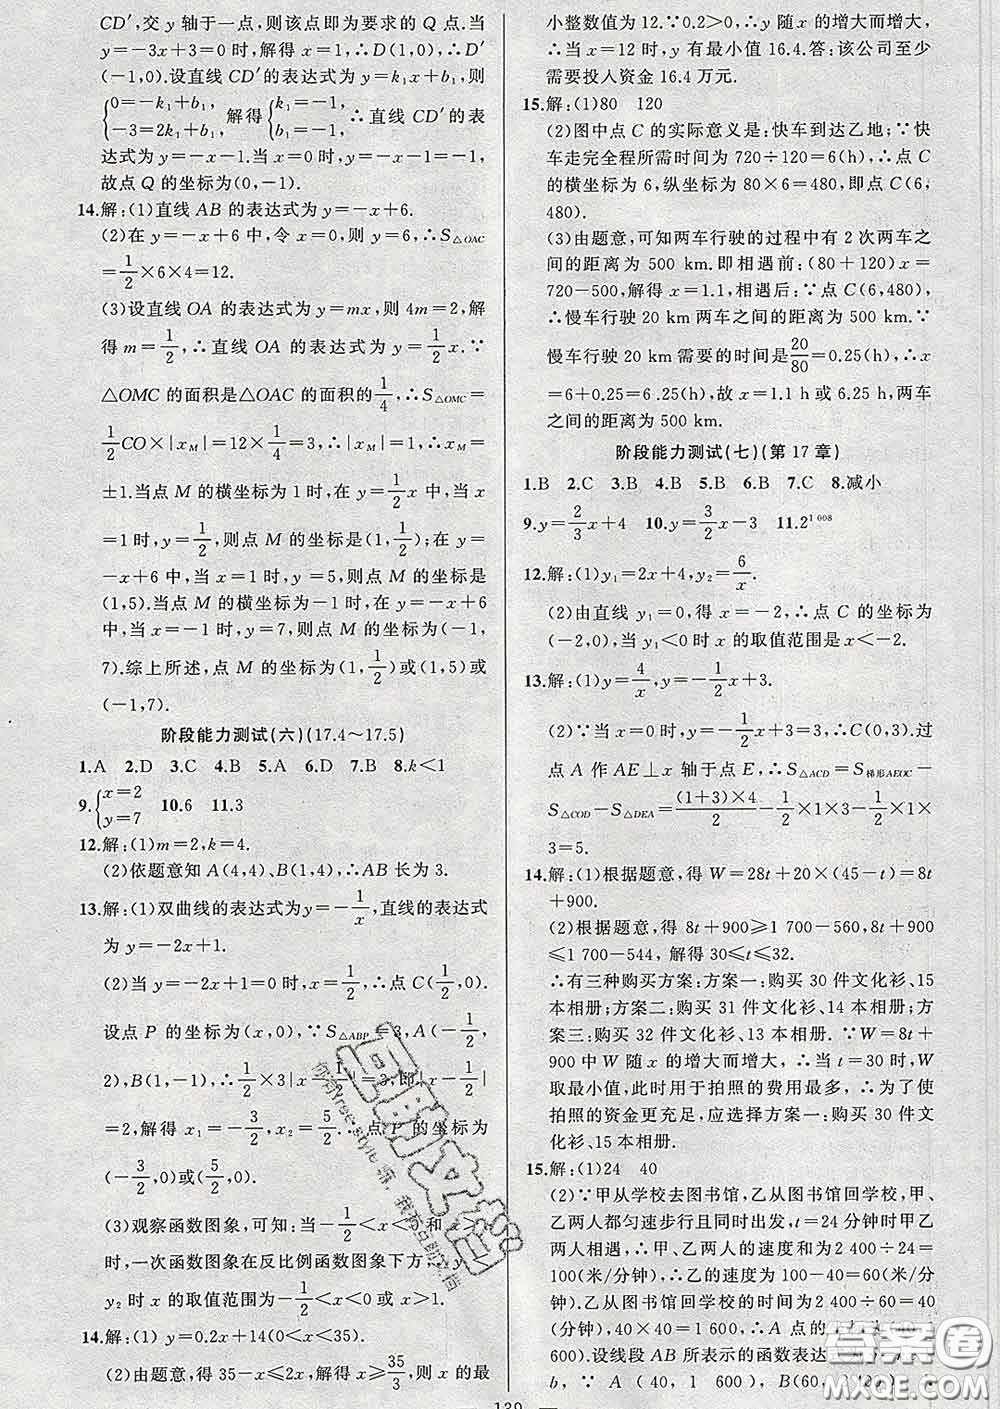 CD′,交 y 轴于一点,则该点即为要求的 Q 点.当
y=-3x+3=0时,解得 x=1,∴D(1,0),∴D′
(-1,0).设直线CD′的表达式为 y=k₁x+b₁,则
{0=-k₁+b₁, -3=2k₁+b₁, 解得{k₁=-1, b₁=-1, ∴直线 CD′的表
达式为 y=-x-1.当 x=0时,y=0-1=-1.
故点 Q 的坐标为(0,-1).
14.解:(1)直线 AB 的表达式为 y=-x+6.
(2)在 y=-x+6 中,令 x=0,则 y=6,∴S△OAC
=1/2×6×4=12.
(3)设直线 OA 的表达式为 y=mx,则 4m=2,解
得 m=1/2,∴直线 OA 的表达式为 y=1/2x.∵
△OMC 的面积是△OAC 的面积的1/4,∴S△OMC=
1/2CO×|xM|=12×1/4=3,∴|xM|=1,∴xM=
±1.当点 M 的横坐标为 1 时,在 y=1/2x 中,当 x
=1时,y=1/2,则点 M 的坐标是(1,1/2);在 y=
-x+6 中,当 x=1时,y=5,则点 M 的坐标是
(1,5).当点 M 的横坐标为-1 时,在 y=-x+6
中,当 x=-1 时,y=7,则点 M 的坐标为(-1,
7).综上所述,点 M 的坐标为(1,1/2)或(1,5)或
(-1,7).
阶段能力测试(六)(17.4~17.5)
1.A 2.D 3.C 4.B 5.A 6.D 7.B 8.k<1
9.{x=2 y=7 10.6 11.3
12.解:(1)m=2,k=4.
(2)依题意知 A(4,4),B(1,4),∴AB 长为 3.
13.解:(1)双曲线的表达式为y=-1/x,直线的表达式
为 y=-2x+1.
(2)当 y=-2x+1=0时,x=1/2,∴点C(1/2,0).
设点 P 的坐标为(x,0),∵S△ABP=3,A(-1/2,
2),B(1,-1),∴1/2×3|x-1/2|=3,即|x-1/2|
=2,解得 x₁=-3/2,x₂=5/2.∴点 P 的坐标为
(-3/2,0)或(5/2,0).
(3)观察函数图象,可知:当-1/2<x<0 和 x>1
时,一次函数图象在反比例函数图象下方,∴y₁<
y₂ 时 x 的取值范围为-1/2<x<0或 x>1.
14.解:(1) y=0.2x+14(0<x<35).
(2)由题意,得35-x≤2x,解得 x≥35/3,则 x 的最
小整数值为 12.∵0.2>0,∴y 随 x 的增大而增大,
∴当 x=12 时,y 有最小值 16.4.答:该公司至少
需要投入资金 16.4 万元.
15.解:(1)80 120
(2)图中点 C 的实际意义是:快车到达乙地;∵快
车走完全程所需时间为 720÷120=6(h),∴点 C
的横坐标为 6,纵坐标为 80×6=480,即点 C(6,
480).
(3)由题意,可知两车行驶的过程中有 2 次两车之
间的距离为 500 km.即相遇前:(80+120)x=
720-500,解得 x=1.1,相遇后:∵点 C(6,480),
∴慢车行驶 20 km 两车之间的距离为 500 km.∵
慢车行驶 20 km 需要的时间是20/80=0.25(h),∴x
=6+0.25=6.25(h),故 x=1.1 h 或 6.25 h,两车
之间的距离为 500 km.
阶段能力测试(七)(第 17 章)
1.B 2.C 3.B 4.B 5.B 6.B 7.C 8.减小
9.y=2/3x+4 10.y=3/2x-3 11.2¹⁰⁰⁸
12.解:(1)y₁=2x+4,y₂=6/x.
(2)由直线 y₁=0,得 x=-2,∴点 C 的坐标为
(-2,0),当 y₁<0 时 x 的取值范围是 x<-2.
13.解:(1)y=4/x,y=-1/2x+3.
(2)当 x=0 时,y=-1/2x+3=3,∴C(0,3).过
点 A 作 AE⊥x 轴于点 E,∴S△ACD=S梯形AEOC-
S△COD-S△DEA=(1+3)×4/2-1/2×1×3-1/2×1×
3=5.
14.解:(1)根据题意,得 W=28t+20×(45-t)=8t
+900.
(2)根据题意,得 8t+900≥1 700-560,8t+900
≤1 700-544,解得 30≤t≤32.
∴有三种购买方案:方案一:购买 30 件文化衫、15
本相册;方案二:购买 31 件文化衫、14 本相册;方
案三:购买 32 件文化衫、13 本相册.∵W=8t+
900 中 W 随 x 的增大而增大,∴当 t=30 时,W
取最小值,此时用于拍照的费用最多,∴为了使
拍照的资金更充足,应选择方案一:购买 30 件文
化衫、15 本相册.
15.解:(1)24 40
(2)∵甲从学校去图书馆,乙从图书馆回学校,甲、
乙两人都匀速步行且同时出发,t=24分钟时甲乙
两人相遇,∴甲、乙两人的速度和为 2 400÷24=
100(米/分钟),∴乙的速度为 100-40=60(米/
分钟).乙从图书馆回学校的时间为 2 400÷60=40
(分钟),40×40=1 600,∴A 点的坐标为(40,
600).设线段 AB 所表示的函数表达
b,∵ A (40,1 600),B(60,2 400)
139
答案圈
MXQE.COM